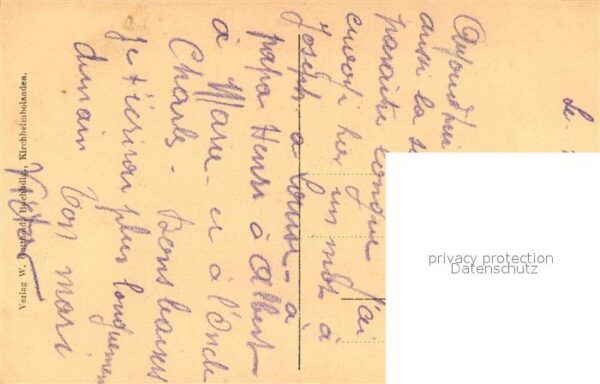 Le
Aujourd'hui
aussi la
paraitre longue J'ai
envoyé hier un mot à
Joseph à Louise - à
papa Henri à Albert
à Marie - et à l'Oncle
Charles - Bons baisers
Je t'écrirai plus longuement
demain Ton mari
Victor
Verlag W. Buchhdlg., Kirchheimbolanden.
privacy protection
Datenschutz